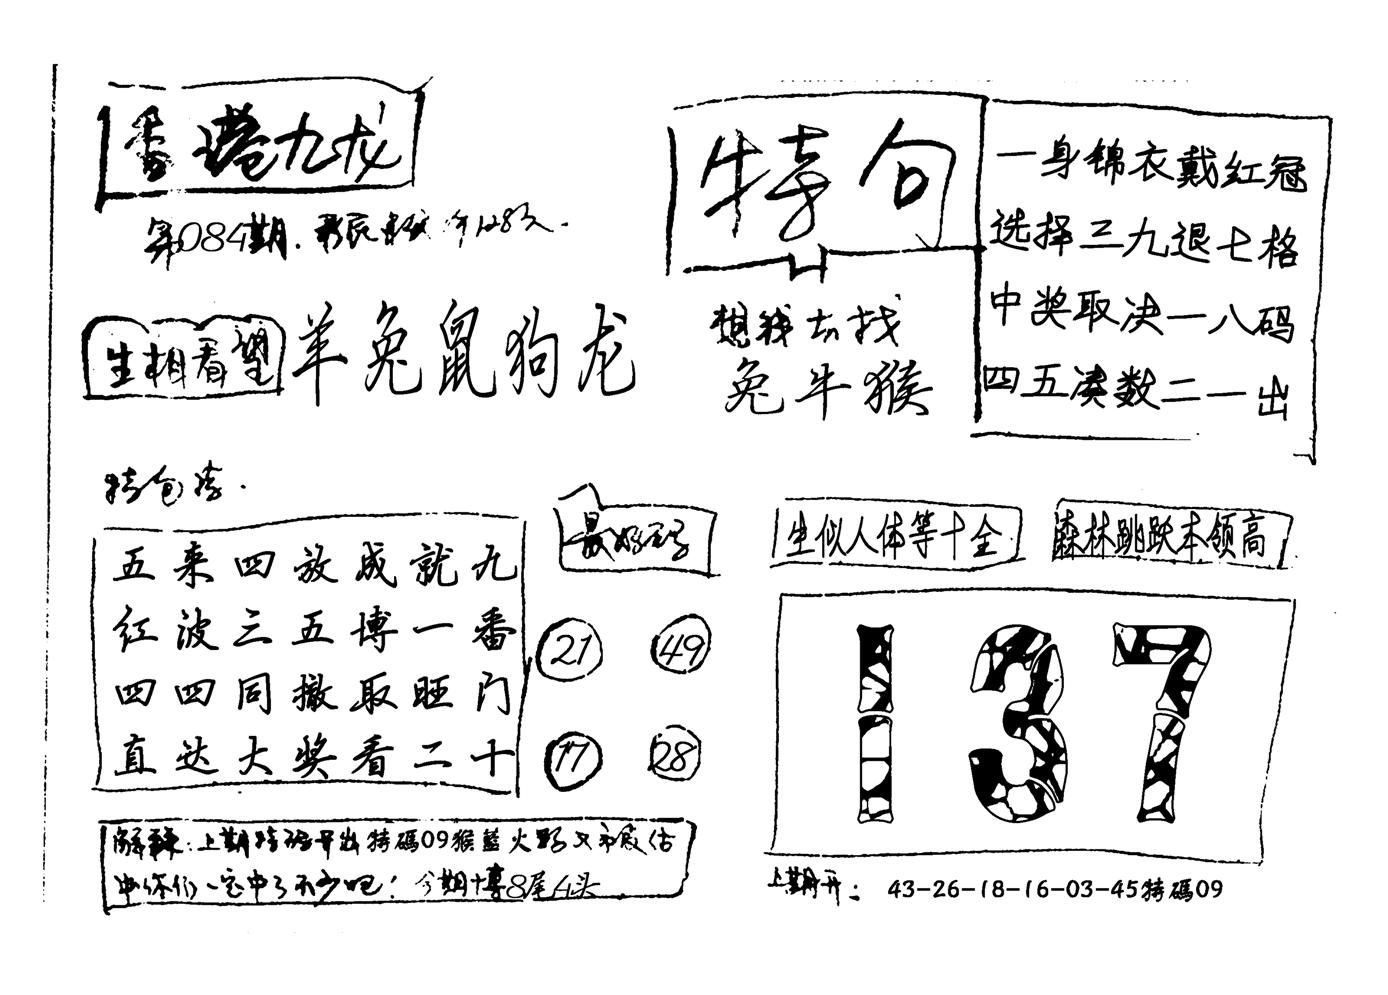 香港九龙
第084期.
生相看望
羊兔鼠狗龙
特句
一身锦衣戴红冠
选择三九退七格
中奖取决一八码
四五凑数二一出
想我去找
兔牛猴
特包
五来四放成就九
红波三五博一番
四四同撤取旺门
直达大奖看二十
最好
21
49
17
28
生似人体等十全
森林跳跃本领高
137
解: 上期特码开出特碼09猴藍火
中你们一定中了不少吧! 今期博8尾4头
上期开: 43-26-18-16-03-45特碼09